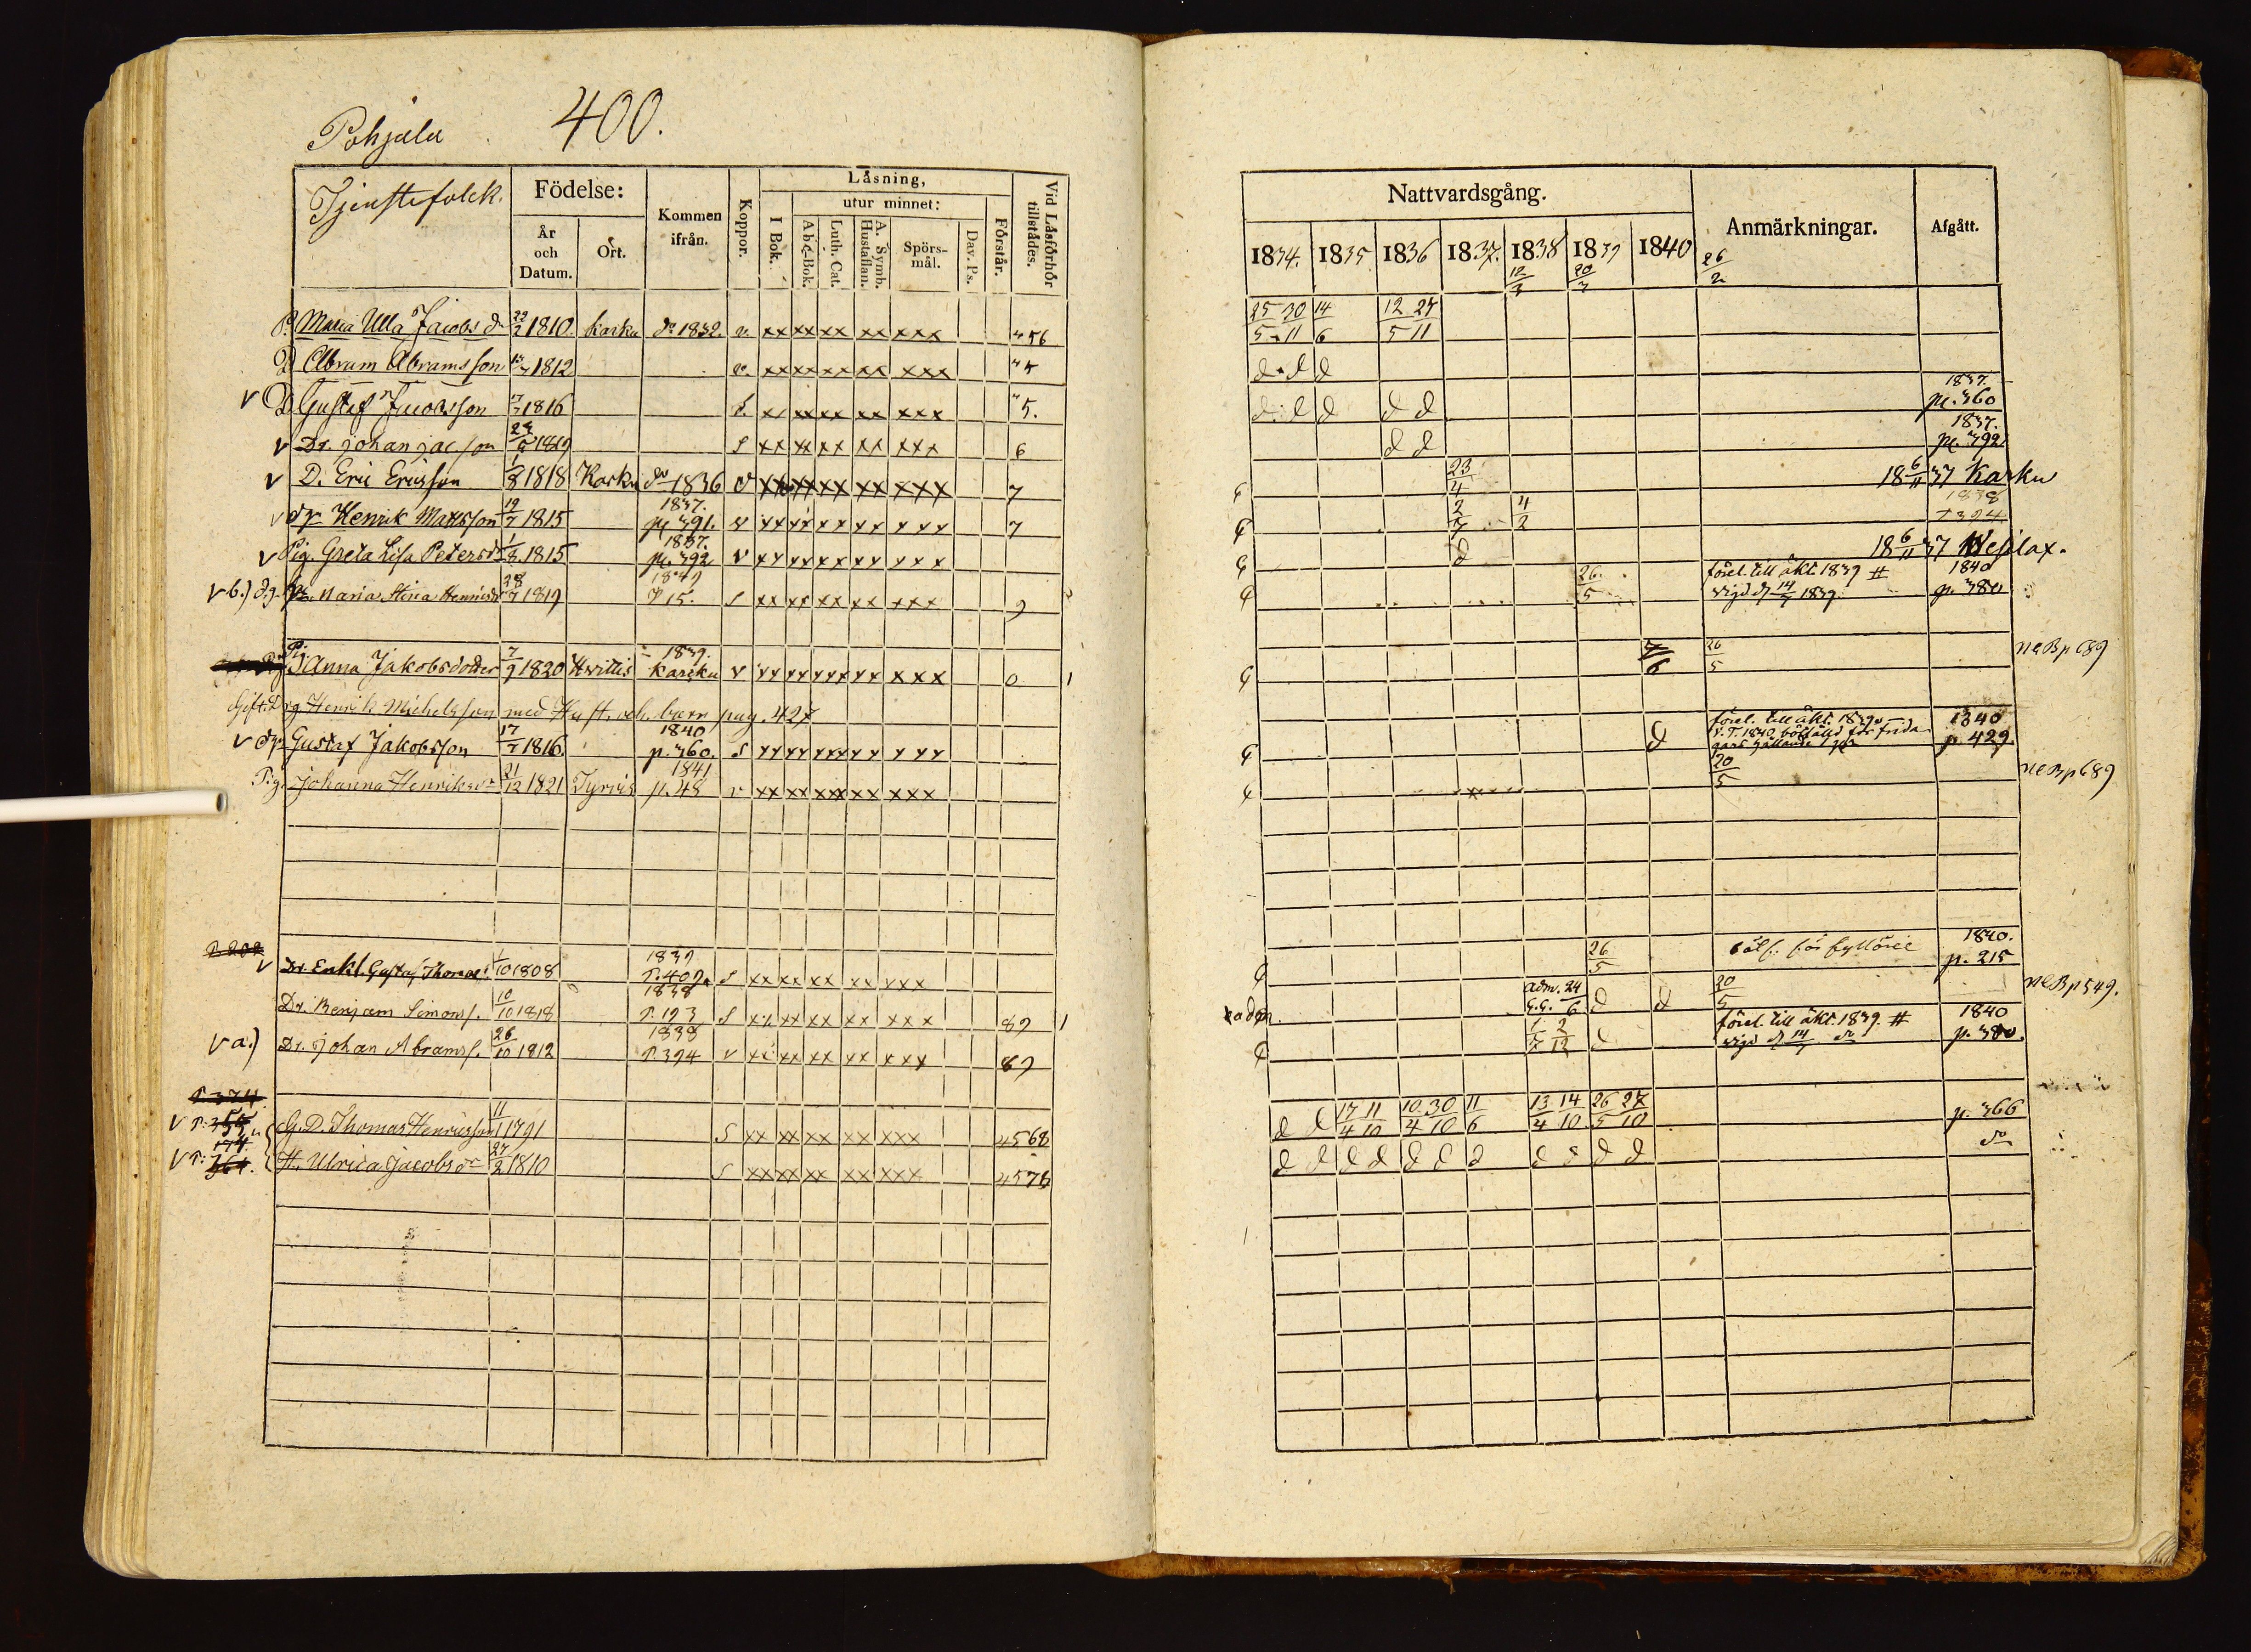 Pohjala 400.
Tjenstefolck. Födelse: År och Datum. Ort. Kommen ifrån. Koppor. Läsning, I Bok. utur minnet: Abc-Bok. Luth. Cat. A. Symb. Hustaflan. Spörsmål. Dav. Ps. Förstår. Vid Läsförhör tillstädes.
P. Maria Ulla Jacobs dr 22/2 1810. Karku do 1832. v. xx xx xx xx xxx 456
D Abram Abramsson 1812 v. xx xx xx xx xxx 5
V D Gustaf Jacobsson 7/7 1816 xx xx xx xxx 5.
V Dr. Johan Jac. son S xx xx xx xx xxx 6
V D. Eric Ericsson 1/8 1818 Karku do 1836 xx xx xx xx xxx 7
1837.
V dr. Henrik Mattsson 19/7 1815 p. 391. v xx xx xx xx xxx 7
1837.
V Pig. Greta Lisa Petersdr 1/8 1815 p. 392 v xx xx xx xx xxx
1839
V b.) Maria Stina Henricsdr 28/7 1819 P 15. S xx xx xx xx xxx 9
Pig. 1839.
Anna Jakobsdotter 7/9 1820 Hvittis Karcku v xx xx xx xx xxx 0 1
Gift. Drg. Henrik Michelsson med Hust. och barn pag. 427
1840
V dr. Gustaf Jakobsson 17/7 1816. p. 360. S xx xx xx xx xxx
1841
Pig. Johanna Henriksdr 21/12 1821 Tyrvis p. 48 v xx xx xx xx xxx
1839
V Dr. Enkl. Gustaf Thomas. 1/10 1808 P. 409. S xx xx xx xx xxx
1838
Dr. Benjam Simonss. 10/10 1818 P. 193 S xx xx xx xx xxx 89 1
1838
V a.) Dr. Johan Abramss. 26/10 1812 P. 394 v xx xx xx xx xxx 89
P. 374
V P. 355 G.D. Thomas Henricsson 11/1 1791 S xx xx xx xx xxx 4568
V P. 361. H. Ulrica Jacobsdr 27/2 1810 S xx xx xx xx xxx
Nattvardsgång. Anmärkningar. Afgått.
1834. 1835 1836 1837. 1838 1839 1840
12/3 20/3 26/2
25 30 14 12 27
5 11 6 5 11
d d d
d d d d d 1837. p. 360
d d 1837. p. 392
23/4 18 6/11 37 Karku
2/7 4/2 1838 p 394
d 18 6/11 37 Wesilax.
26/5 förel. till äkt. 1839 # vigd d 14/7 1839. 1840 p. 380
7/6 26/5 NCB p 689
d förel. till äkt. 1839. 1840 p. 429.
20/5 NCB p 689
26/5 1840. p. 215
adm. 24/6 d d 20/5 NCB p 549.
1/7 2/12 d förel. till äkt. 1839. # vigd d 14/7 do 1840 p. 380.
d d 17 11 10 30 11 13 14 26 27 p. 366
4 10 4 10 6 4 10 5 10
d d d d d d d d d d d do